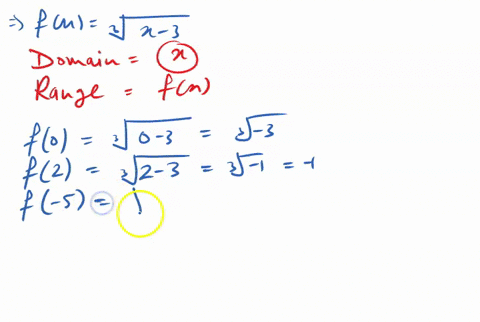 ⇒ f(x) = ∛(x-3)
Domain = x
Range = f(x)
f(0) = ∛(0-3) = ∛-3
f(2) = ∛(2-3) = ∛-1 = -1
f(-5) =